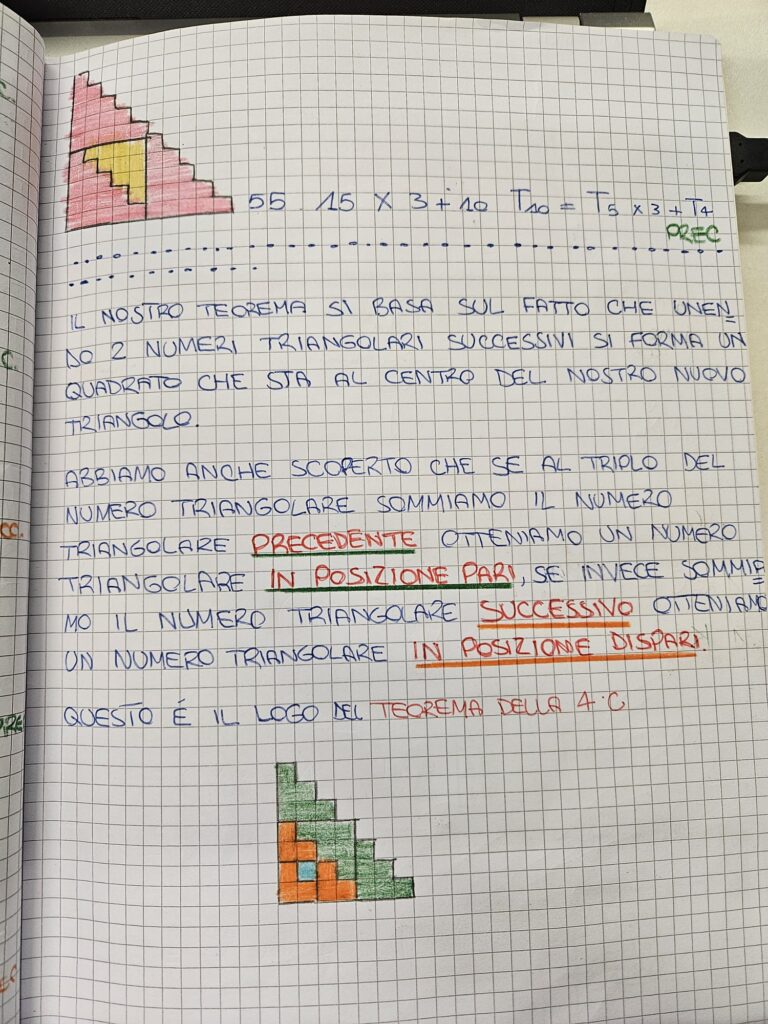 55 15 X 3 + 10 T10 = T5 X 3 + T4
PREC
IL NOSTRO TEOREMA SI BASA SUL FATTO CHE UNEN=
DO 2 NUMERI TRIANGOLARI SUCCESSIVI SI FORMA UN
QUADRATO CHE STA AL CENTRO DEL NOSTRO NUOVO
TRIANGOLO.
ABBIAMO ANCHE SCOPERTO CHE SE AL TRIPLO DEL
NUMERO TRIANGOLARE SOMMIAMO IL NUMERO
TRIANGOLARE PRECEDENTE OTTENIAMO UN NUMERO
TRIANGOLARE IN POSIZIONE PARI, SE INVECE SOMMIA=
MO IL NUMERO TRIANGOLARE SUCCESSIVO OTTENIAMO
UN NUMERO TRIANGOLARE IN POSIZIONE DISPARI.
QUESTO É IL LOGO DEL TEOREMA DELLA 4^C